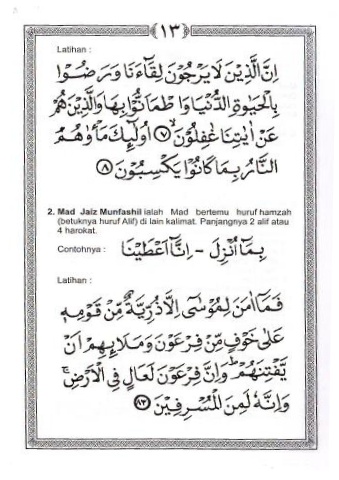 ١٣
Latihan :
اِنَّ الَّذِيْنَ لَا يَرْجُوْنَ لِقَآءَنَا وَرَضُوْا
بِالْحَيٰوةِ الدُّنْيَا وَاطْمَاَنُّوْا بِهَا وَالَّذِيْنَ هُمْ
عَنْ اٰيٰتِنَا غٰفِلُوْنَ ۙ ٧ اُولٰٓئِكَ مَأْوٰىهُمُ
النَّارُ بِمَا كَانُوْا يَكْسِبُوْنَ ٨
2. Mad Jaiz Munfashil ialah Mad bertemu huruf hamzah
(betuknya huruf Alif) di lain kalimat. Panjangnya 2 alif atau
4 harokat.
Contohnya : بِمَآ اُنْزِلَ - اِنَّآ اَعْطَيْنَا
Latihan :
فَمَآ اٰمَنَ لِمُوْسٰٓى اِلَّا ذُرِّيَّةٌ مِّنْ قَوْمِهٖ
عَلٰى خَوْفٍ مِّنْ فِرْعَوْنَ وَمَلَا۟ئِهِمْ اَنْ
يَّفْتِنَهُمْ ۗ وَاِنَّ فِرْعَوْنَ لَعَالٍ فِى الْاَرْضِ ۚ
وَاِنَّهٗ لَمِنَ الْمُسْرِفِيْنَ ٨٣